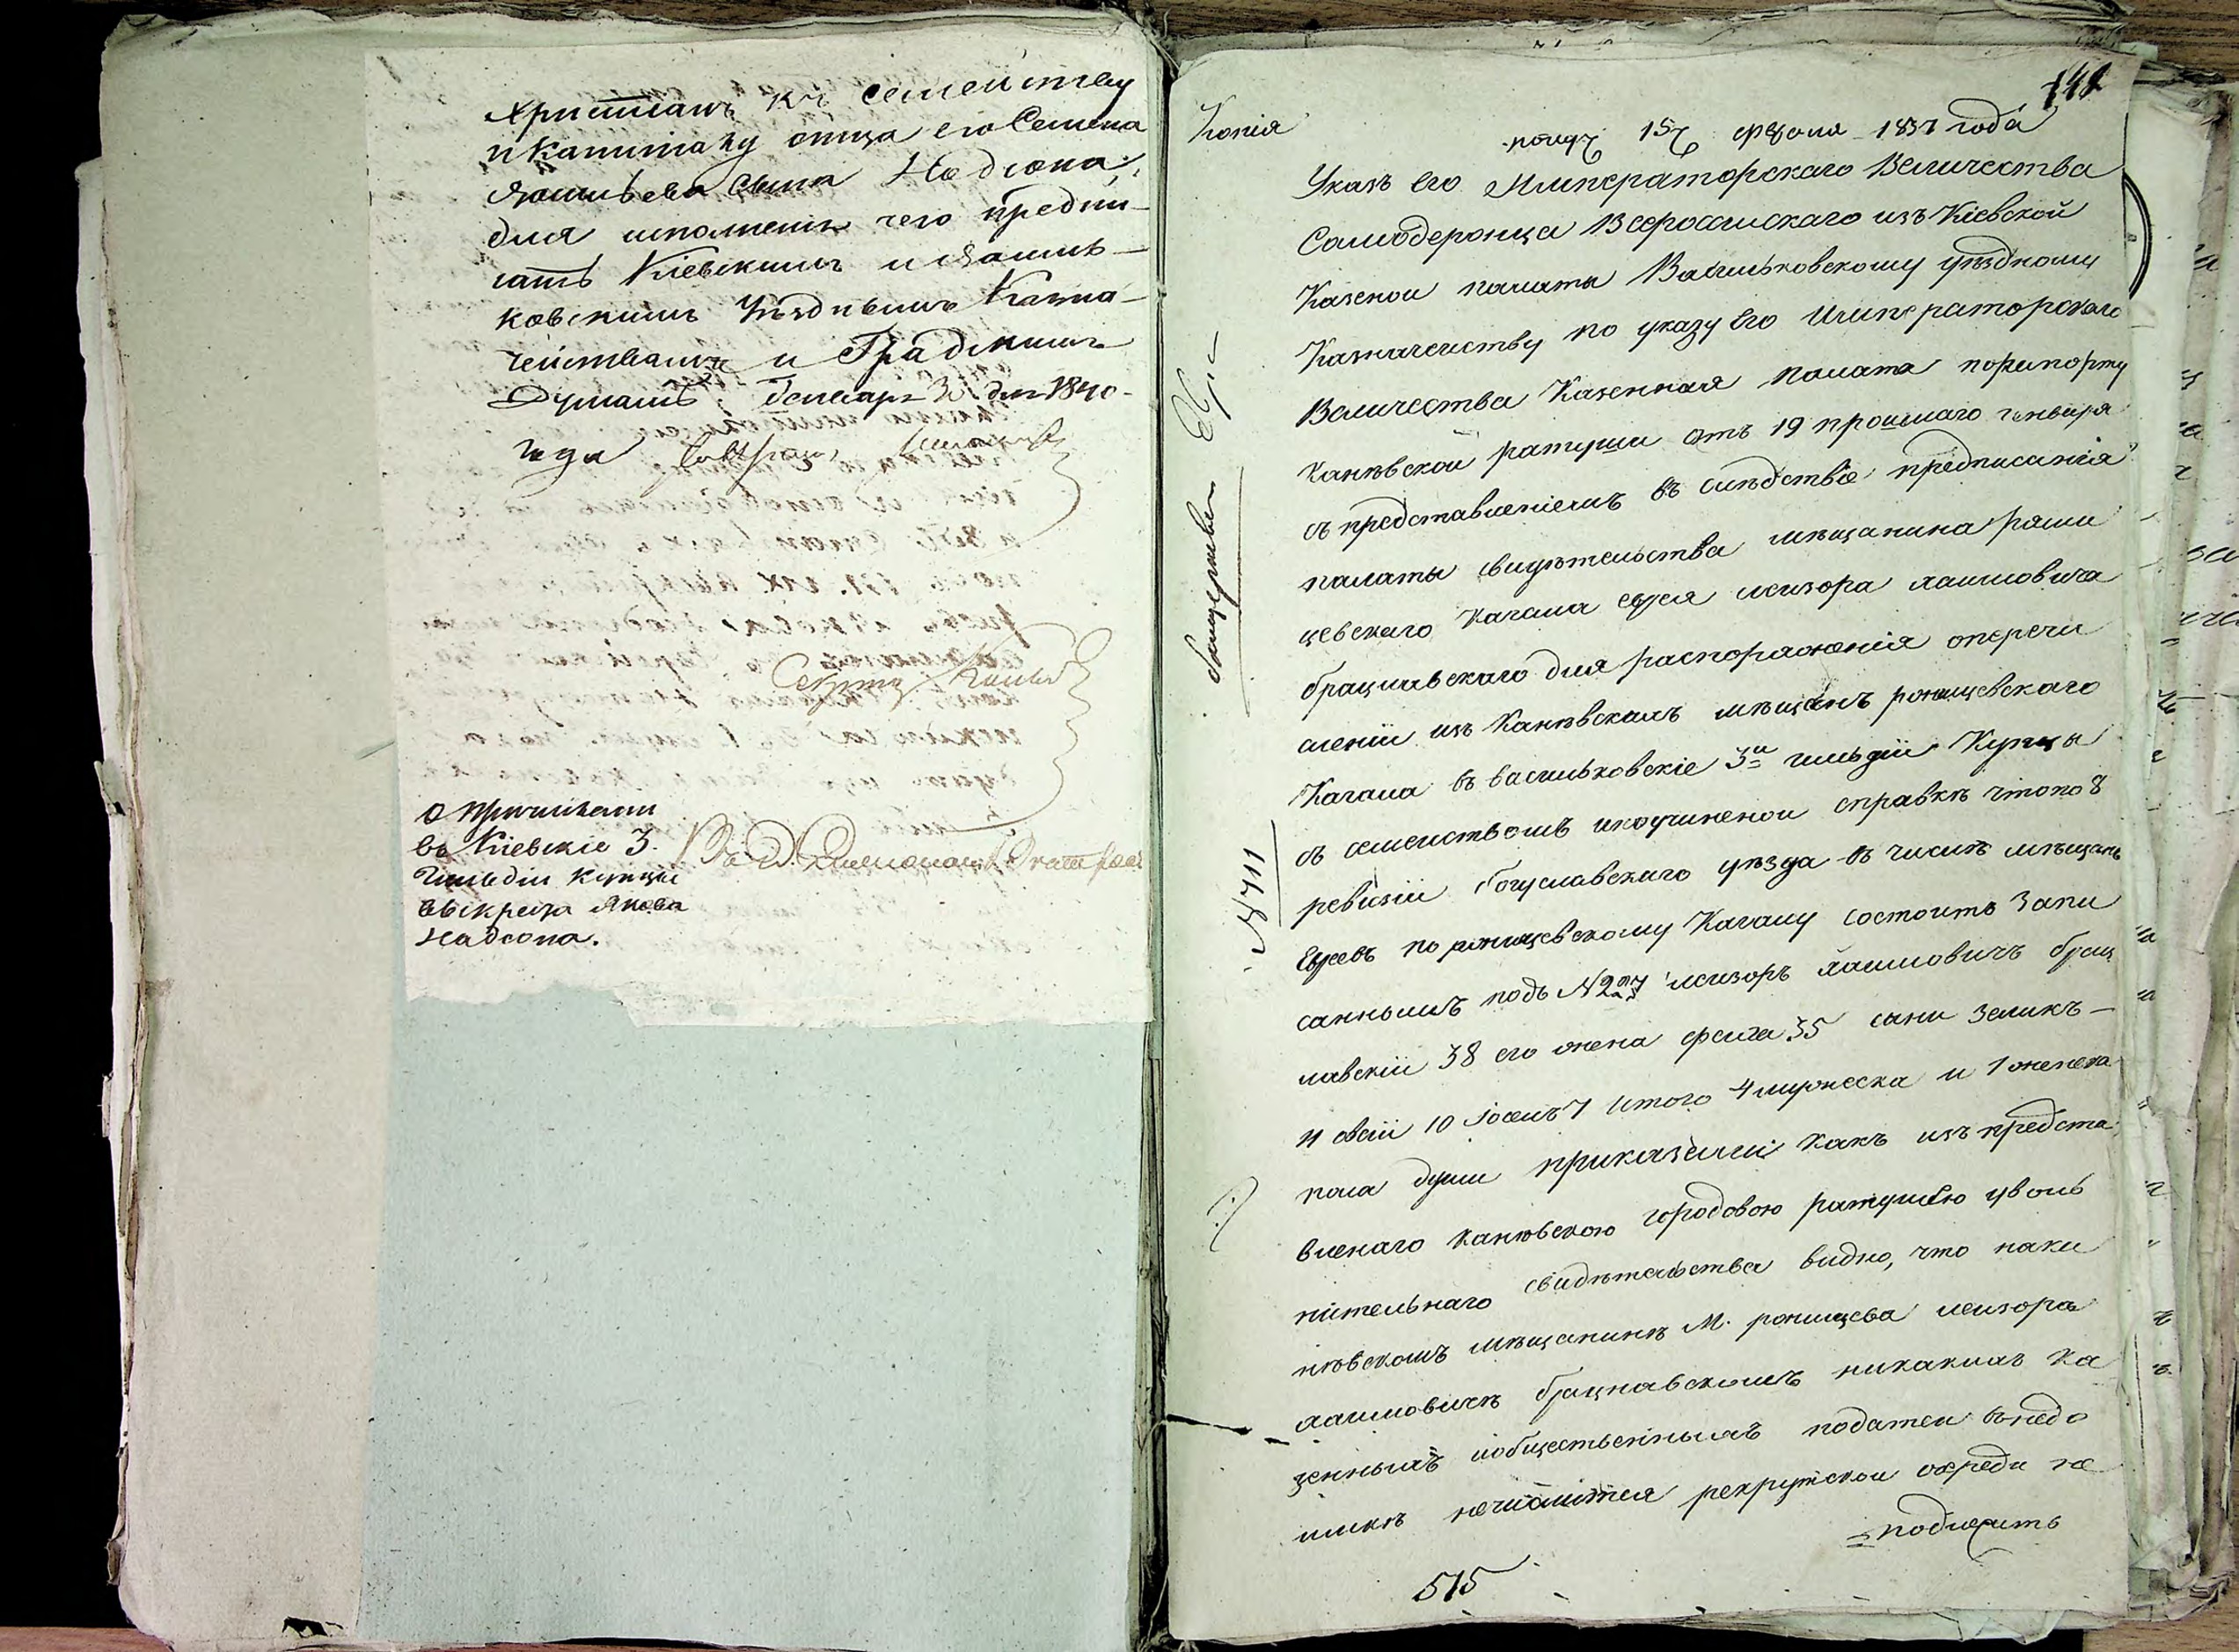 христианъ къ семейству
и капиталу отца его Семена
Васильева сына Надсона,
для исполненія чего предпи-
сать Кіевскимъ и Василь-
ковскимъ Уѣзднымъ Казна-
чействамъ и Градскимъ
Думамъ. Генваря 31 дня 1840-
года
Секрет
о причисленіи
въ Кіевскіе 3.
Гильдіи купцы
выкреста Якова
Надсона.
142
Копія
получ 15 февраля 1837 года
Указъ Его Императорскаго Величества
Самодержца Всеросийскаго изъ Кіевской
Казеной палаты Васильковскому уѣздному
Казначейству по указу Его Императорскаго
Величества Казенная палата по рапорту
Каневской ратуши отъ 19 прошлаго генваря
съ представленіемъ въ слѣдствіе предписанія
палаты свидѣтельства мѣщанина ржи
щевскаго Кагала еврея лейзора хаимовича
брацлавскаго для распоряженія о перечи
сленіи изъ Каневскихъ мѣщанъ ржищевскаго
Кагала въ васильковскіе 3й гильдіи Купцы
съ семействомъ и по учиненой справкѣ что по 8
ревизіи богуславскаго уѣзда въ числѣ мѣщанъ
Евреевъ по ржищевскому Кагалу состоитъ запи
саннымъ подъ N 227 лейзоръ хаимовичъ брац
лавскій 38 его жена фейга 35 сыни Зеликъ -
11 овсій 10 Іосъ 7 Итого 4 мужеска и 1 женска
пола души приказали какъ изъ предста
вленаго каневскою городовою ратушею уволь
нительнаго свидѣтельства видно, что на ка
невскомъ мѣщанинѣ М. ржищева лейзора
хаимовичѣ брацлавскомъ никакихъ ка
зенныхъ и общественныхъ податей въ недо
имкѣ не числится рекрутской очреди не
подлежитъ
N 711
515